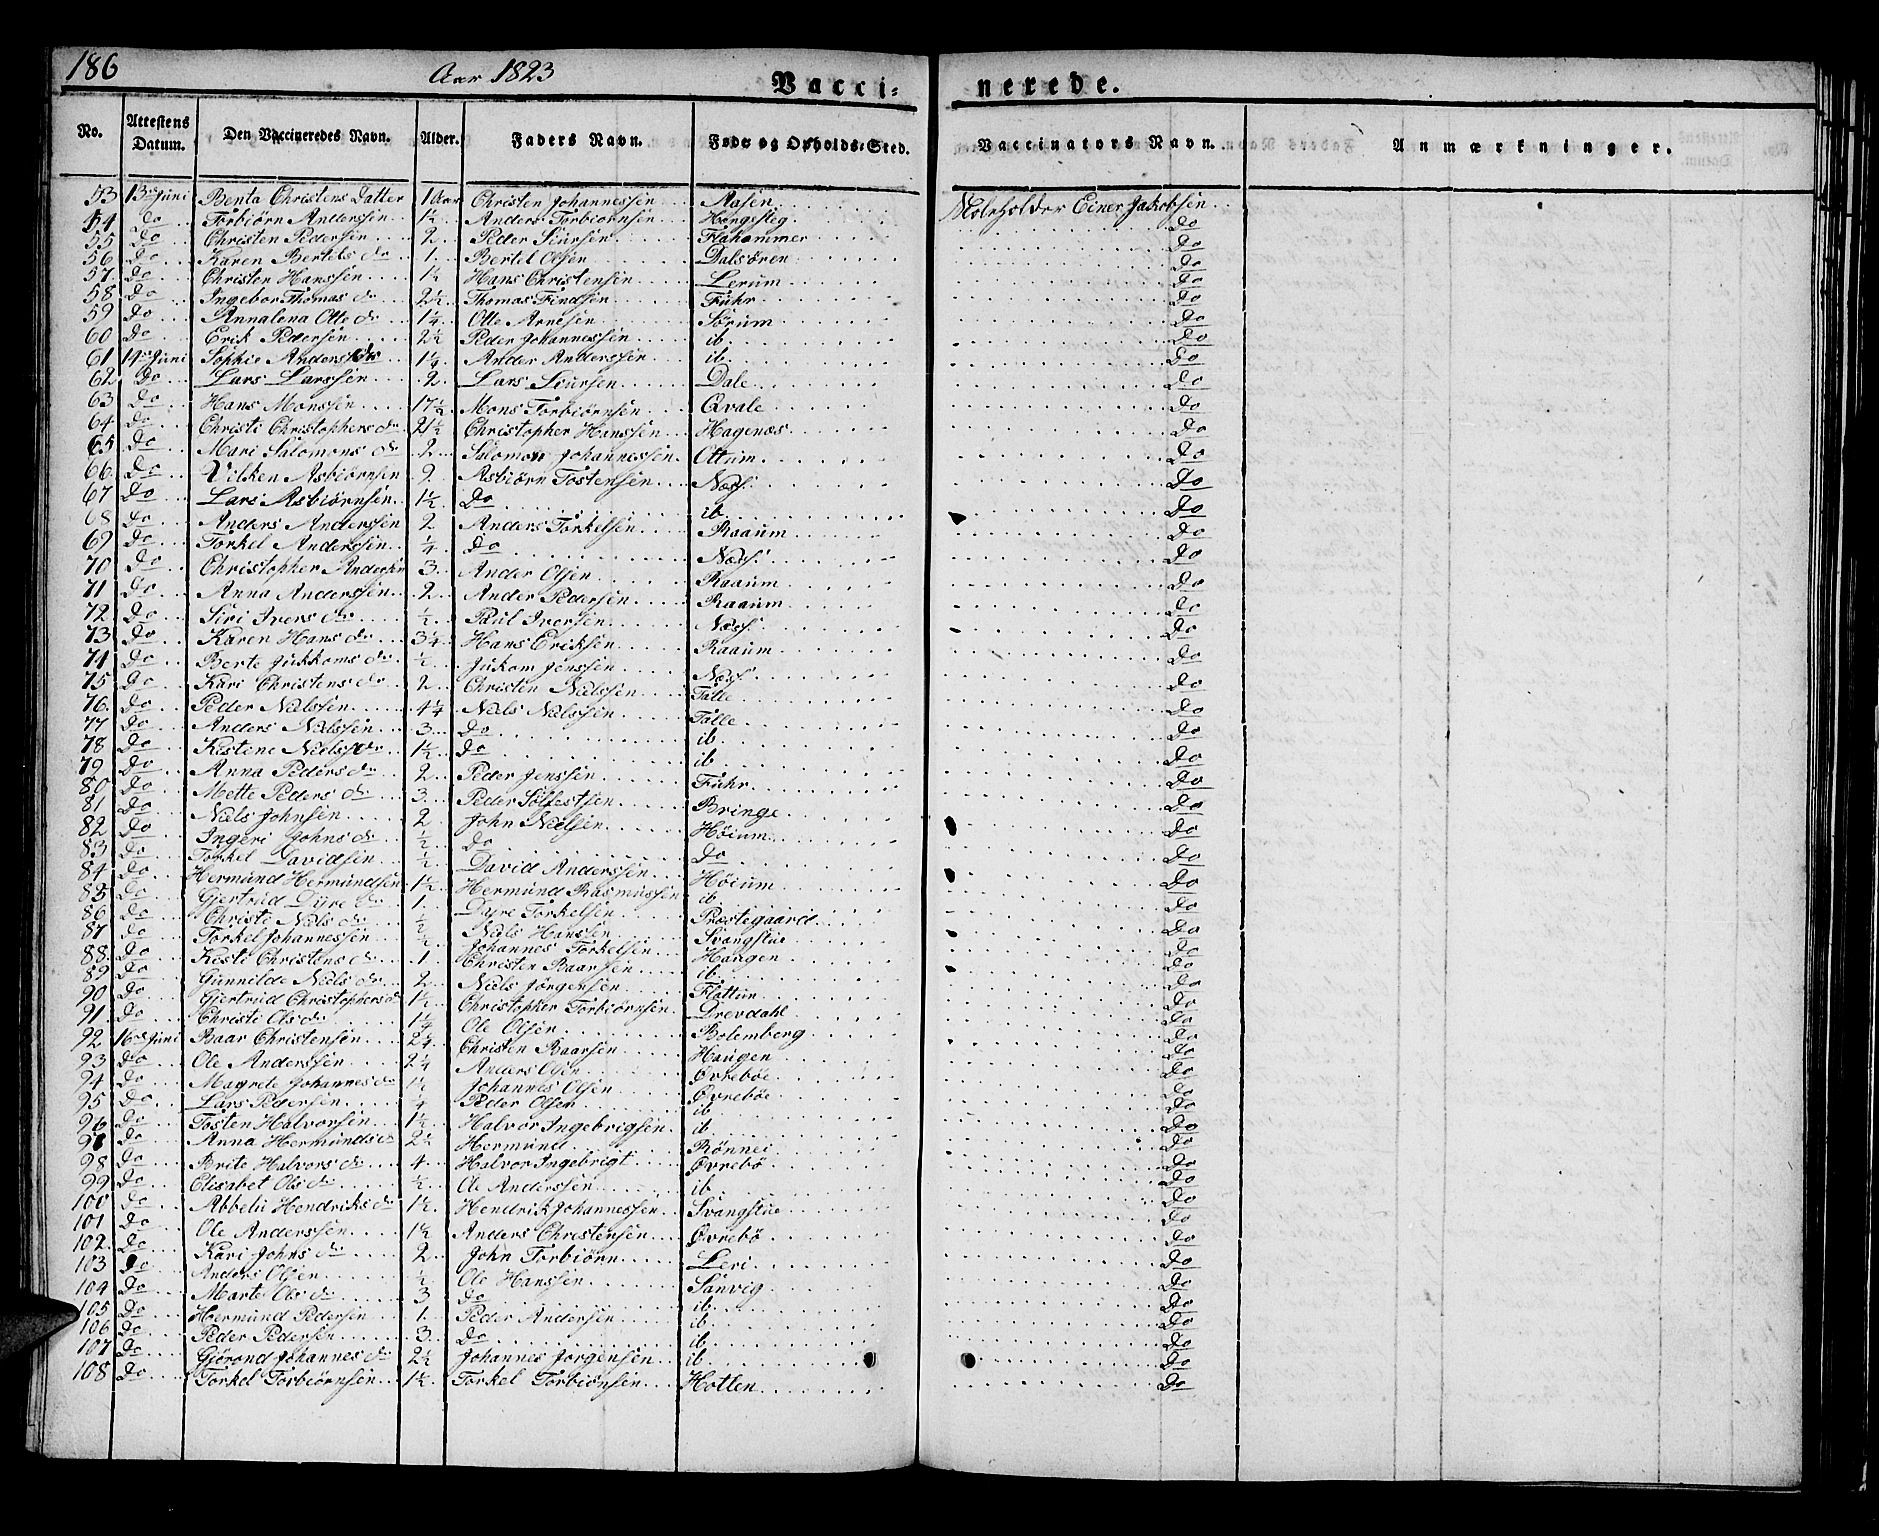 186 Aar 1823 Vacci- nerede.
No. Attestens Datum. Den Vaccineredes Navn. Alder. Faders Navn. Føde og Opholds-Sted. Vaccinators Navn. Anmærkninger.
53 13de Juni Benta Christens Datter 1 Aar Christen Johannessen Aasen Einer Jakobsen
54 Do Torbiörn Anderssen 1½ Anders Torbiörnsen Do
55 Do Christen Pedersen 2 Peder Siursen Flahammer Do
56 Do Karen Bertels dr 1 Bertel Olsen Dalsören Do
57 Do Christen Hanssen Hans Christensen Lerum Do
58 Do Ingebor Thomas dr 2½ Thomas Findsen Fuhr Do
59 Do Annalena Otte dr 1¼ Otte Arnesen Sörum Do
60 Do Erik Pedersen 2½ Peder Johannessen ib Do
61 14de Juni Sophie Anders dr 1¼ Ander Anderssen ib Do
62 Do Lars Larssen 2 Lars Siursen Dale Do
63 Do Hans Monssen 17½ Mons Torbiörnsen Qvale Do
64 Do Christi Christophers dr 21½ Christopher Hanssen Hagenæs Do
65 Do Mari Salomons dr 2 Salomon Johannessen Ottum Do
66 Do Vilken Asbiörnsen 9 Asbiörn Tostensen Næss Do
67 Do Lars Asbiörnsen 1½ Do ib Do
68 Do Anders Anderssen 2 Anders Torkelsen Raaum Do
69 Do Torkel Anderssen ¼ Do Næss Do
70 Do Christopher Andersen 3 Ander Olsen Raaum Do
71 Do Anna Anderssen 2 Ander Pedersen Raaum Do
72 Do Siri Ivers dr ½ Paul Iversen Næss Do
73 Do Karen Hans dr 3¼ Hans Eriksen Raaum Do
74 Do Berte Jukkoms dr ½ Jukom Jenssen Næss Do
75 Do Kari Christens dr 2 Christen Nielssen Talle Do
76 Do Peder Nielssen 4¼ Niels Nielssen Talle Do
77 Do Anders Nielssen 3 Do ib Do
78 Do Kistene Niels dr 1½ Do ib Do
79 Do Anna Peders dr 2 Peder Jenssen Fuhr Do
80 Do Mette Peders dr 3 Peder Solfestsen Bringe Do
81 Do Niels Johnsen 2 John Nielsen Höium Do
82 Do Ingeri Johns dr ½ Do Do Do
83 Do Torkel Davidsen ½ David Anderssen Höium Do
84 Do Hermund Hermundsen 1½ Hermund Rasmussen ib Do
85 Do Gjertrud Dyre dr 1 Dyre Torkelsen Præstegaard Do
86 Do Christi Niels dr ½ Niels Hanssen Svangstue Do
87 Do Torkel Johannessen ½ Johannes Torkelsen Haugen Do
88 Do Kisti Christens dr 1 Christen Baarsen ib Do
89 Do Gunnilde Niels dr 2 Niels Jörgensen Flattum Do
90 Do Gjertrud Christophers dr 1½ Christopher Torbiörnsen Drevdahl Do
91 Do Christi Ols dr 1¼ Ole Olsen Bolemberg Do
92 16de Juni Baar Christensen 2¼ Christen Baarsen Haugen Do
93 Do Ole Anderssen 2¼ Anders Olsen Övreböe Do
94 Do Magrete Johannes dr 1½ Johannes Olsen Övreböe Do
95 Do Lars Pedersen ¼ Peder Olsen ib Do
96 Do Tosten Halvorsen 1½ Halvor Ingebrigsen ib Do
97 Do Anna Hermunds dr 2½ Hermund Rönnei Do
98 Do Brite Halvors dr 4 Halvor Ingebrigt Övrebö Do
99 Do Elisabet Ols dr ½ Ole Anderssen ib Do
100 Do Abbelu Hendriks dr 1½ Hendrik Johannessen Svangstue Do
101 Do Ole Anderssen 1½ Anders Christensen Övrebö Do
102 Do Kari Johns dr 2 John Torbiörn Leri Do
103 Do Anders Olsen ½ Ole Hanssen Sanvig Do
104 Do Marte Ols dr 3 Do ib Do
105 Do Hermund Pedersen 1 Peder Andersen ib Do
106 Do Peder Pedersen 3 Do ib Do
107 Do Gjörond Johannes dr 2½ Johannes Jorgensen ib Do
108 Do Torkel Torbiörnsen 1½ Torkel Torbiönsen Hotlen Do